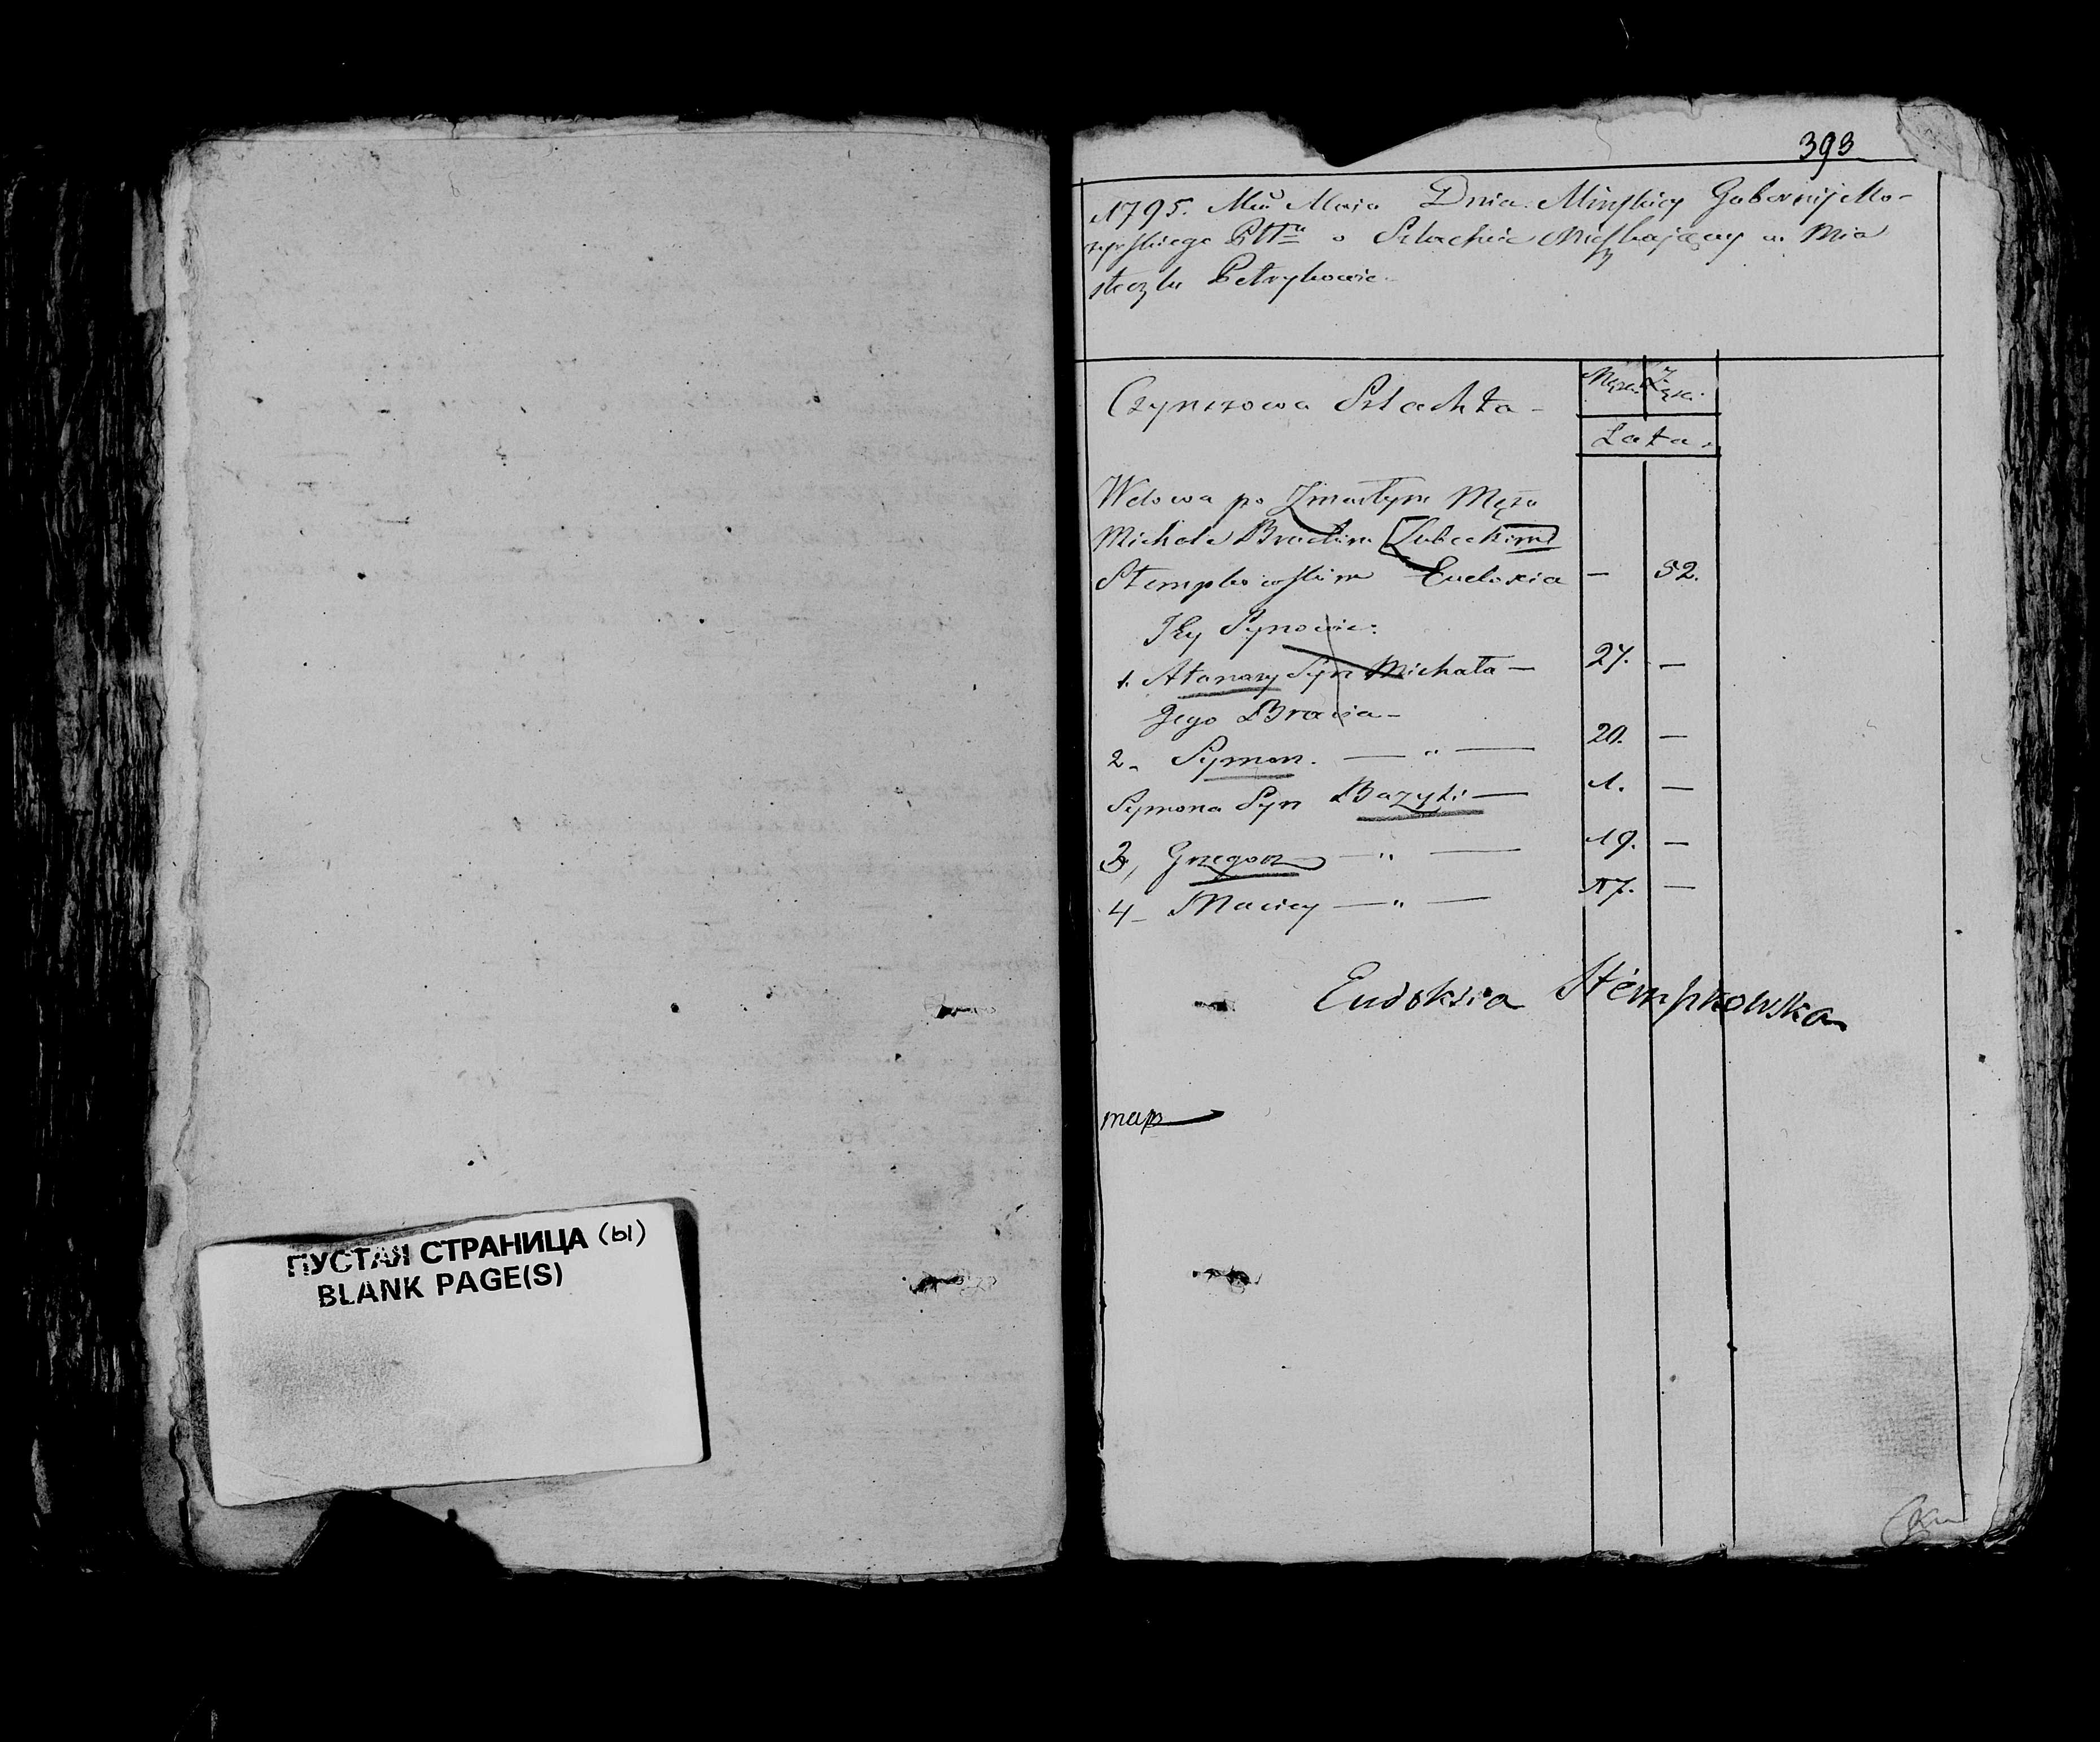 ПУСТАЯ СТРАНИЦА (ы)
BLANK PAGE(S)
393
1795. Mca Maia Dnia. Minskiey Gubernij Mo-
zyrskiego Pttu o Szlachcie Mieszkaiącey w Mia
steczku Petrykowie.
Czynszowa Szlachta -
Męzka Żęska.
Lata.
Wdowa po Zmarłym Mężu
Michale Bracłim
Stempkowskim Eudoxia — 52.
Jey Synowie:
1. Atanazy Syn Michała — 27. —
Jego Bracia -
2. Symon. — " — 20. —
Symona Syn Bazyli — 1. —
3, Grzegorz — " — 19. —
4 - Maciey — " — 17. —
Eudoksia Stempkowska